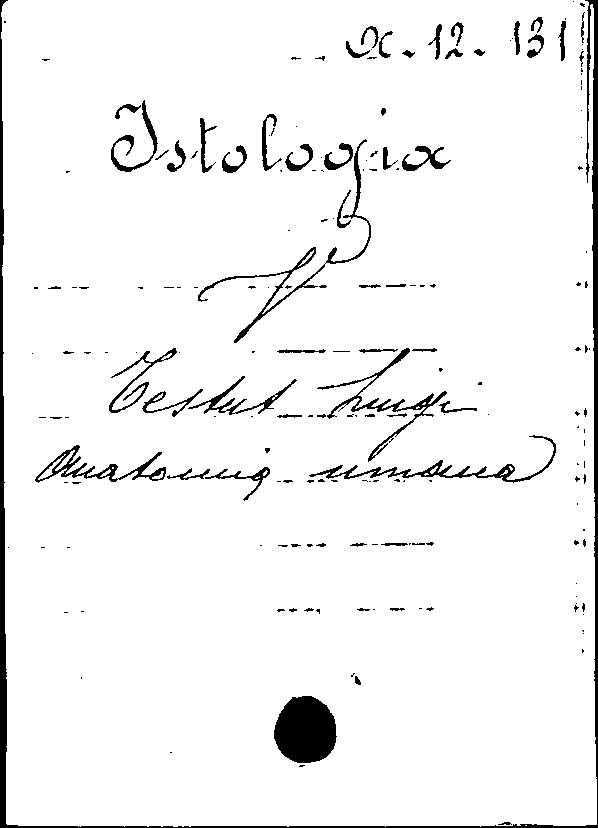 α. 12. 131
Istologia
V
Testut Luigi
Anatomia umana